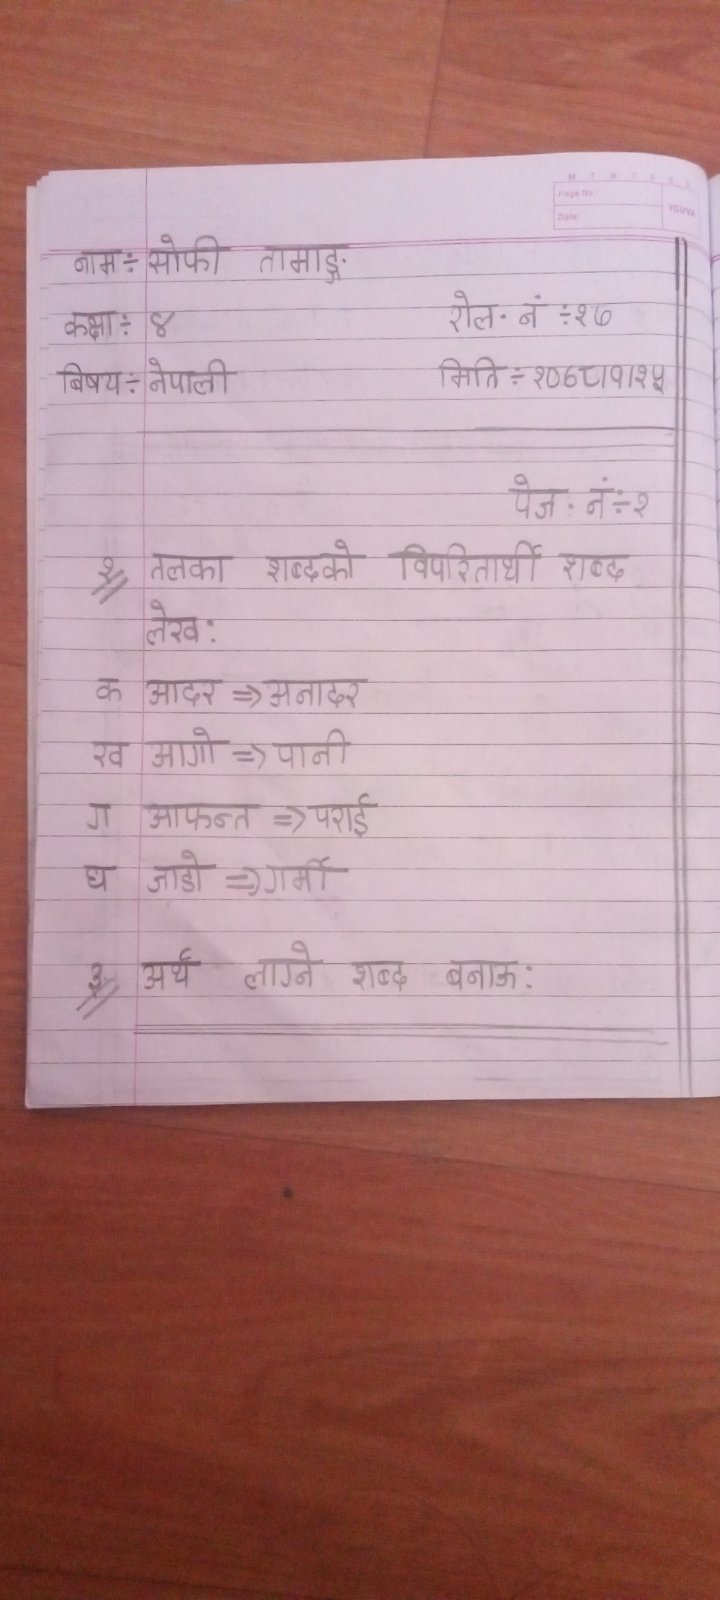 M T W T F S S
Page No.:
Date:
YOUVA
नामः÷ सोफी तामाङ्ग.
कक्षाः÷ ४
रोल. नं ÷२७
बिषयः÷ नेपाली
मिति ÷२०७८।१।२५
पेज. नं÷२
२ तलका शब्दको विपरितार्थी शब्द
लेख:
क आदर ⇒ अनादर
ख आगो ⇒ पानी
ग आफन्त ⇒ पराई
घ जाडो ⇒ गर्मी
३ अर्थ लाग्ने शब्द बनाऊ: